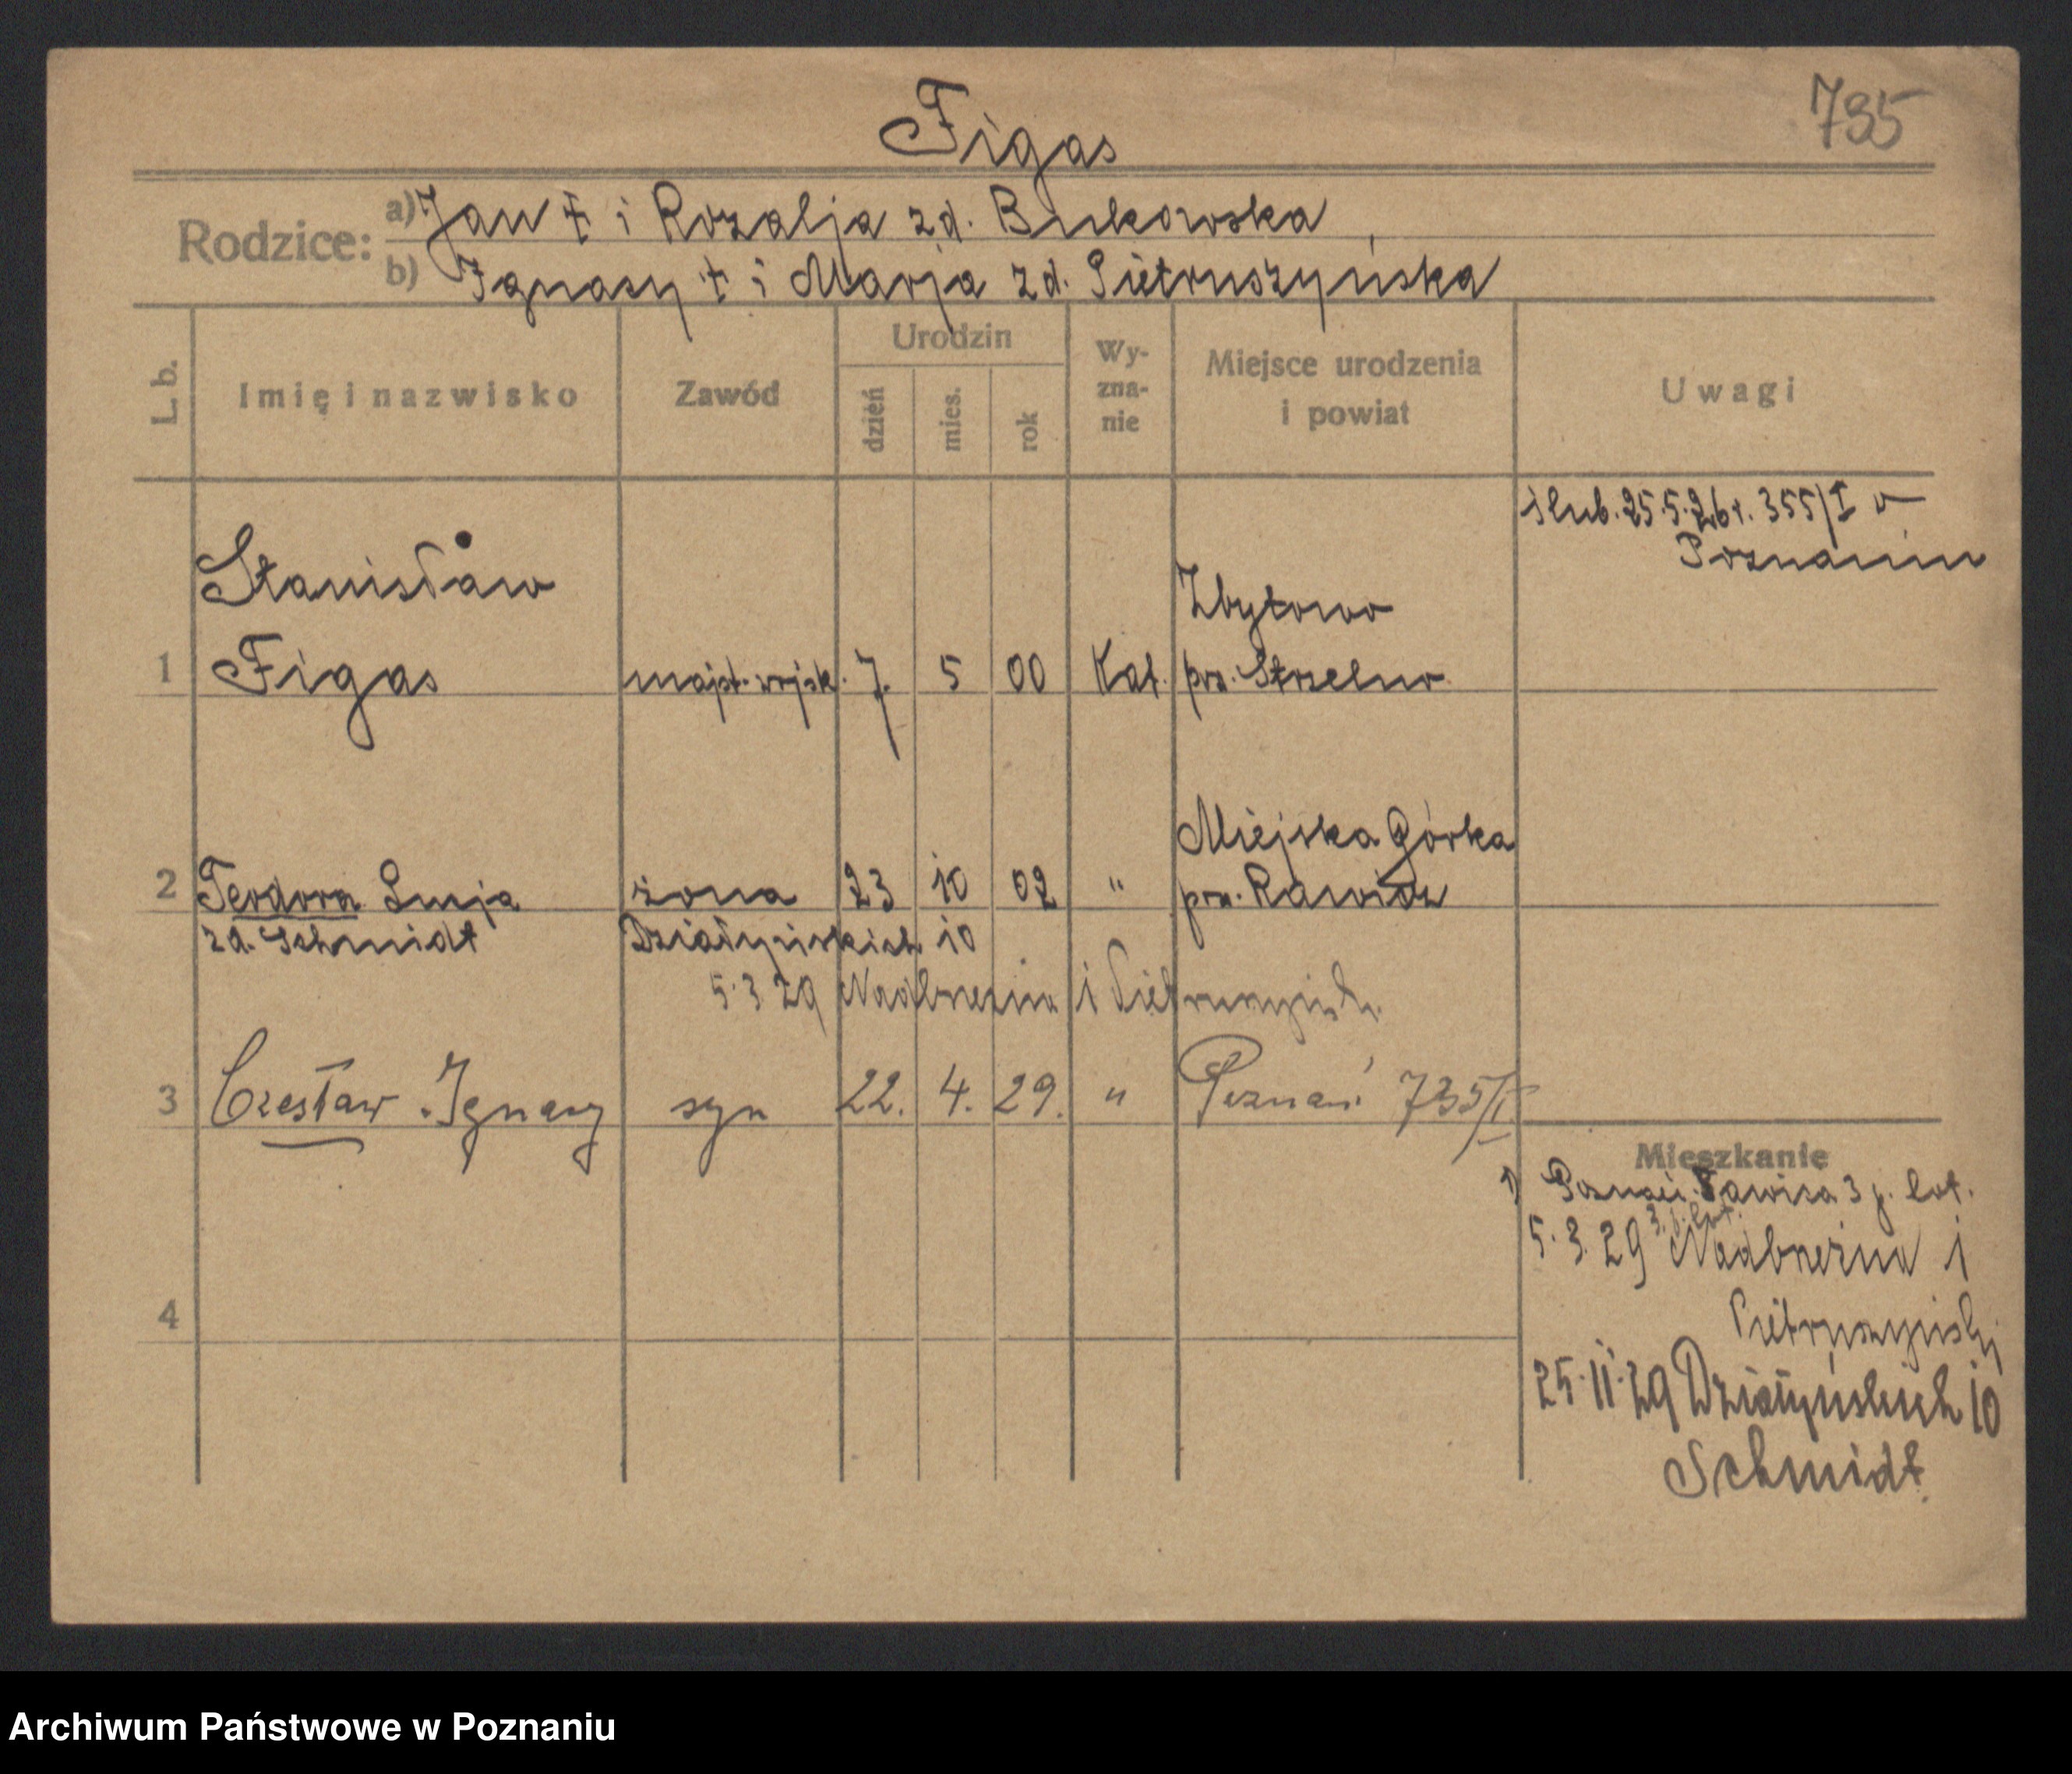 Figas
735
Rodzice: a) Jan † i Rozalja zd. Bukowska
b) Ignasy † i Marja zd. Pietruszyńska
L. b.
Imię i nazwisko
Zawód
Urodzin
dzień
mies.
rok
Wy-
zna-
nie
Miejsce urodzenia
i powiat
Uwagi
ślub. 25.5.26 r. 355/I w
Poznaniu
Stanisław
Zbytowo
1 Figas majst. wojsk. 7. 5 00 Kat. pow. Strzelno
Miejska Górka
2 Teodora Lucja żona 23 10 02 " pow. Rawicz
zd. Schmidt Działyńskich 10
5.3 29 Nadbrzeżna 1
3 Czesław Ignacy syn 22. 4. 29. " Poznań 735/I
Mieszkanie
1) Poznań. Ławica 3 p. lot.
3. p. lot.
5.3.29 Nadbrzeżna 1
4
25.11.29 Działyńskich 10
Schmidt
Archiwum Państwowe w Poznaniu